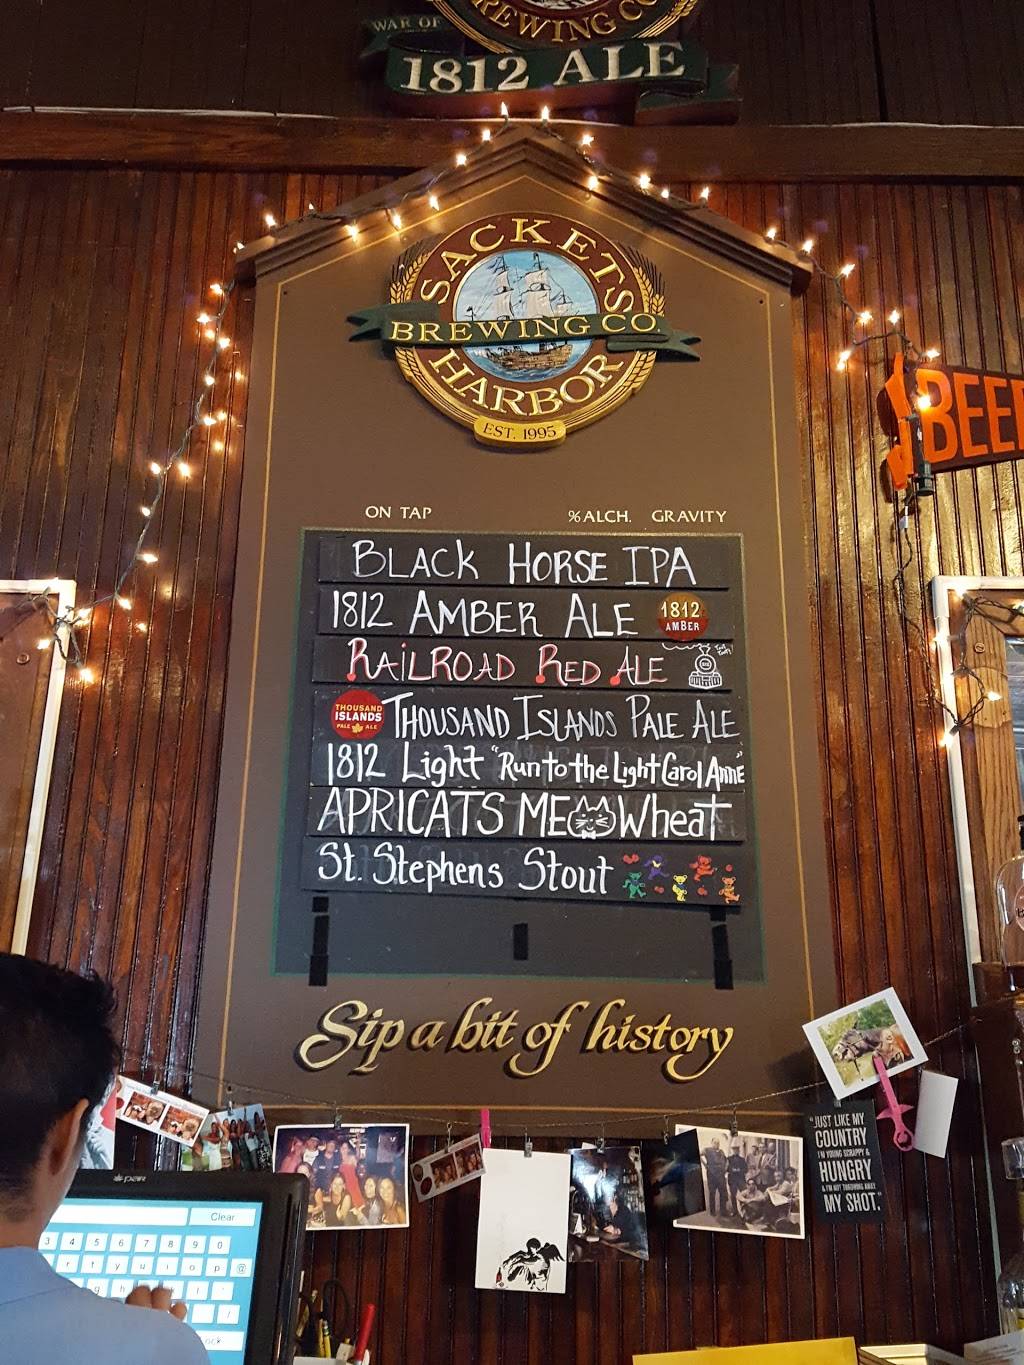 BREWING CO
WAR OF
1812 ALE
SACKETS
BREWING CO.
HARBOR
EST. 1995
BEER
ON TAP %ALCH. GRAVITY
BLACK HORSE IPA
1812 AMBER ALE 1812 AMBER
RAILROAD RED ALE
THOUSAND ISLANDS PALE ALE THOUSAND ISLANDS PALE ALE
1812 Light "Run to the Light Carol Anne"
APRICATS MEOWheat
St. Stephens Stout
Sip a bit of history
"JUST LIKE MY
COUNTRY
I'M YOUNG SCRAPPY &
HUNGRY
& I'M NOT THROWING AWAY
MY SHOT."
Clear
3 4 5 6 7 8 9 0
r t y u i o p @
g h